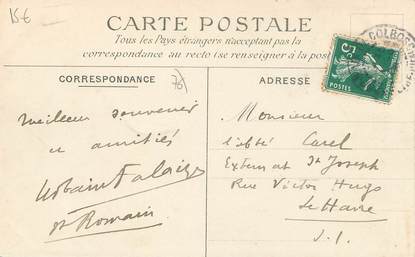 15€
CARTE POSTALE
Tous les Pays étrangers n'acceptant pas la
correspondance au recto (se renseigner à la poste
CORRESPONDANCE
76
ADRESSE
5c
POSTES
COLBOSC
meilleur souvenir
et amitiés
Urbain Falaize
St Romain
Monsieur
l'abbé Carel
Externat St Joseph
Rue Victor Hugo
Le Havre
S. I.